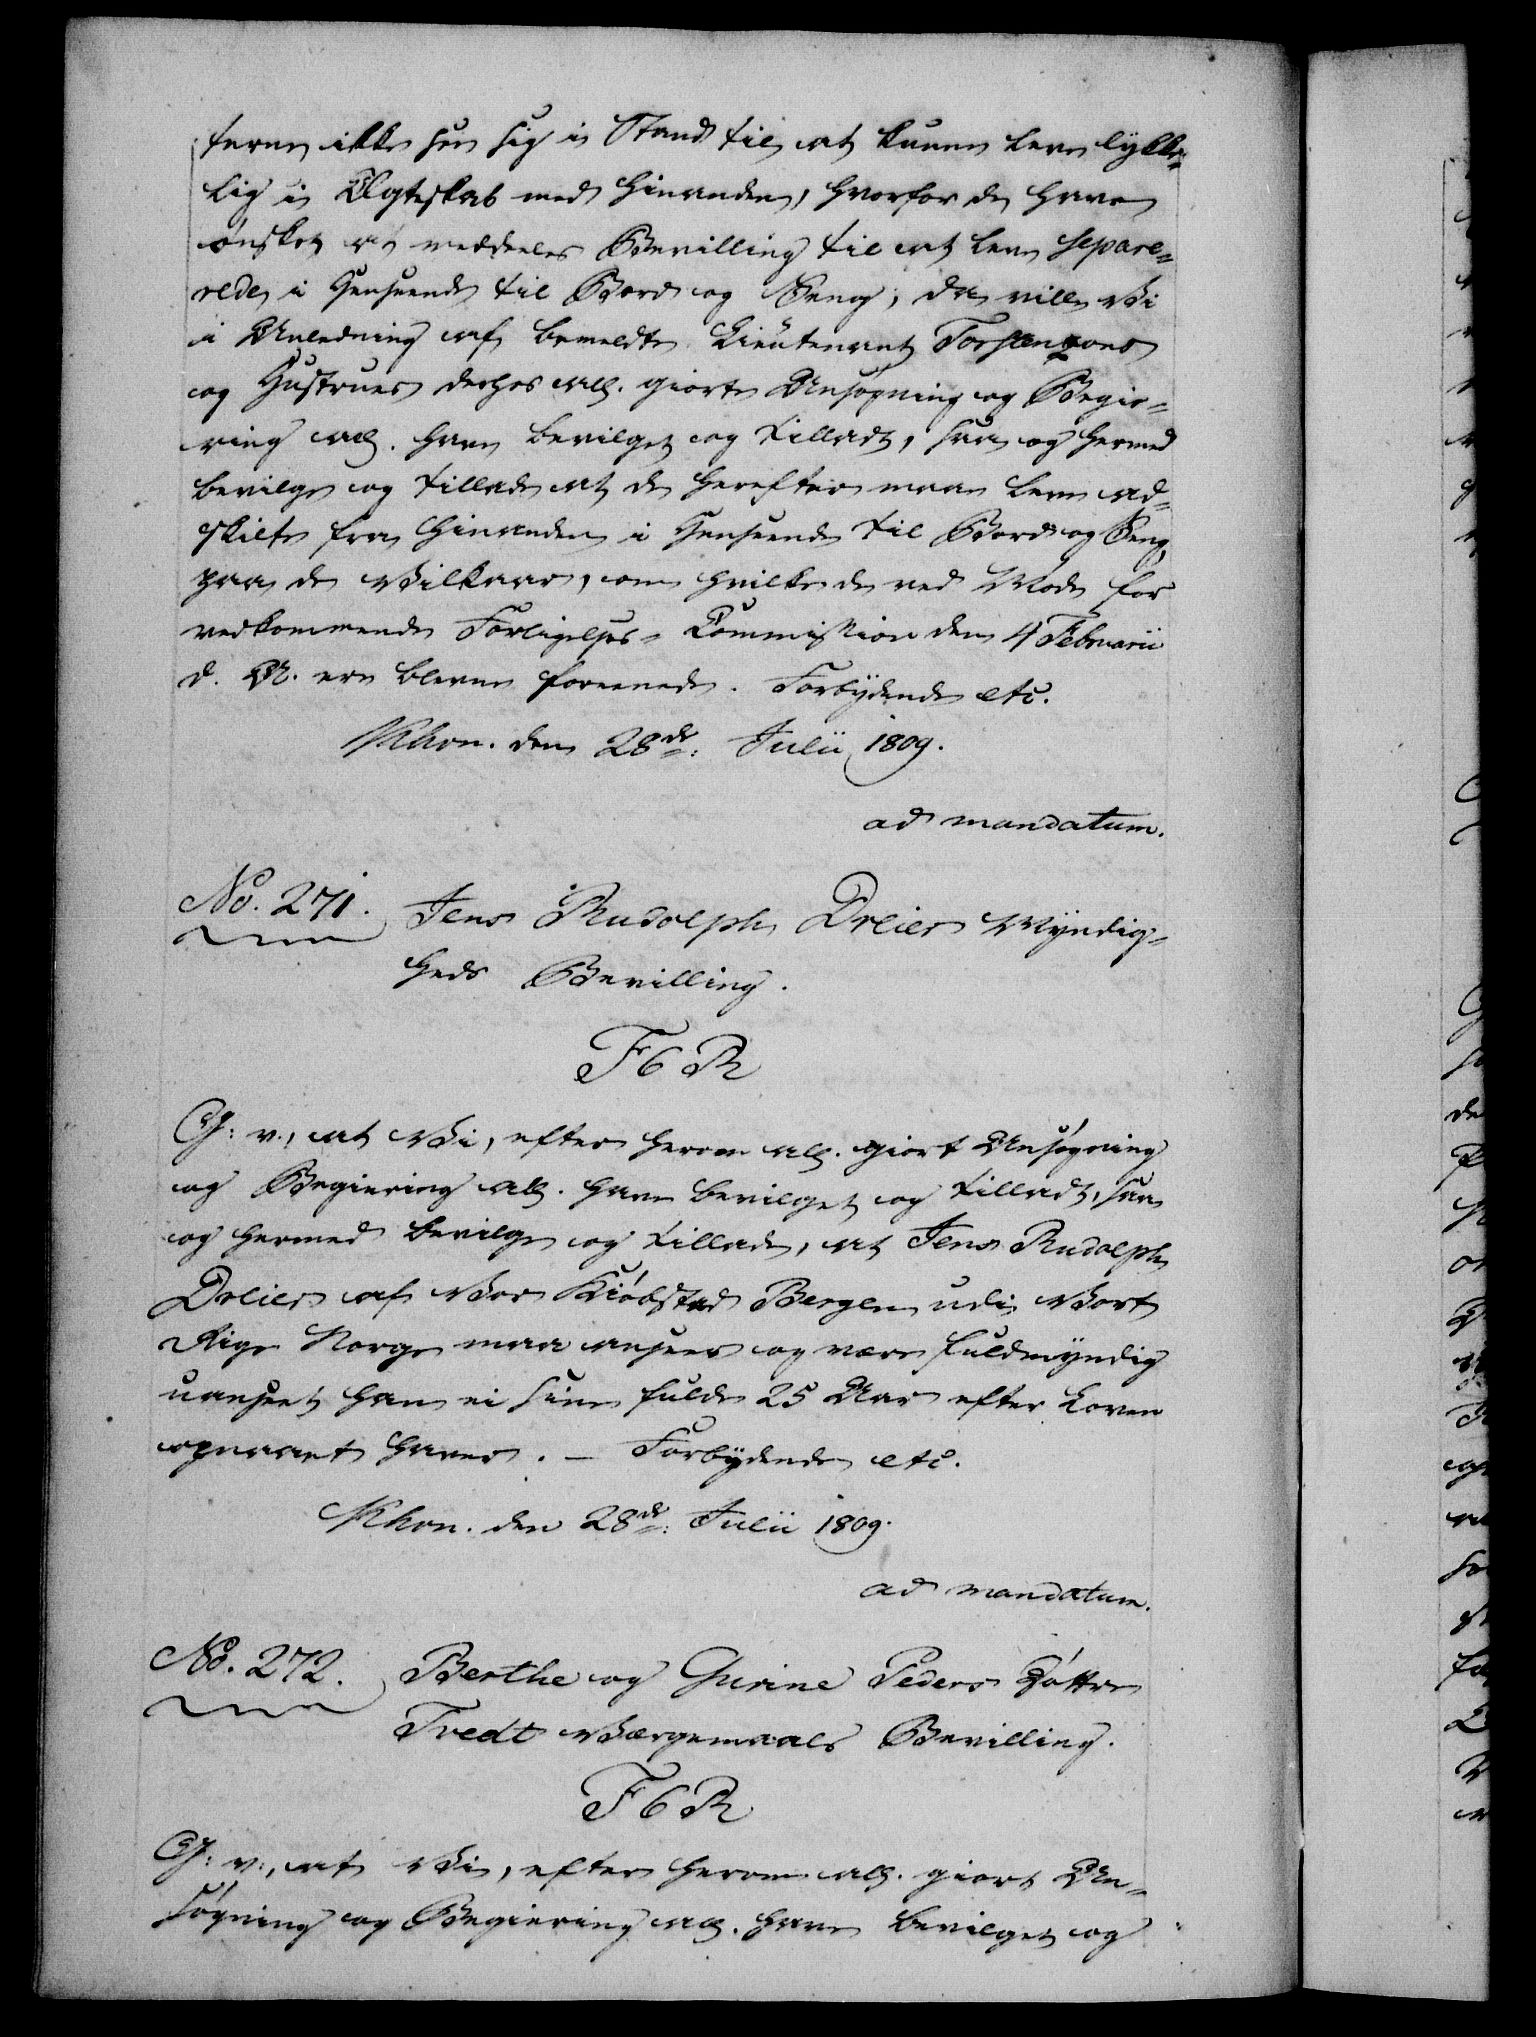 teren ikke see sig i Stand til at kunne leve lykke-
lig i Ægteskab med hinanden, hvorfor de have
ønsket at meddeeles Bevilling til at leve separe-
rede i Henseende til Bord og Seng; da ville Vi
i Anledning af bemeldte Lieutenant
og Hustrues derhos all. giorte Ansøgning og Begie-
ring all. have bevilget og tilladt, saa og hermed
bevilge og tillade at de herefter maae leve ad-
skilte fra hinanden i Henseende til Bord og Seng,
paa de Vilkaar, om hvilke de ved Møde for
vedkommende Forligelses-Commission den 4 Februarii
d. A. ere blevne foreenede. Forbydende etc.
Khvn. den 28de: Julii 1809.
ad mandatum.
No. 271. Jens Rudolph Dreier Myndig-
heds Bevilling.
F6R
G: v., at Vi, efter herom all. giort Ansøgning
og Begiering all. have bevilget og tilladt, saa
og hermed bevilge og tillade, at Jens Rudolph
Dreier af Vor Kiøbstad Bergen udi Vort
Rige Norge maa ansees og være fuldmyndig
uanseet han ei sine fulde 25 Aar efter Loven
opnaaet haver. – Forbydende etc.
Khvn. den 28de: Julii 1809.
ad mandatum.
No. 272. Berthe og Gurine Peders Døttre
Tvedt Værgemaals Bevilling.
F6R
G: v:, at Vi, efter herom all. giort An-
søgning og Begiering all. have bevilget og